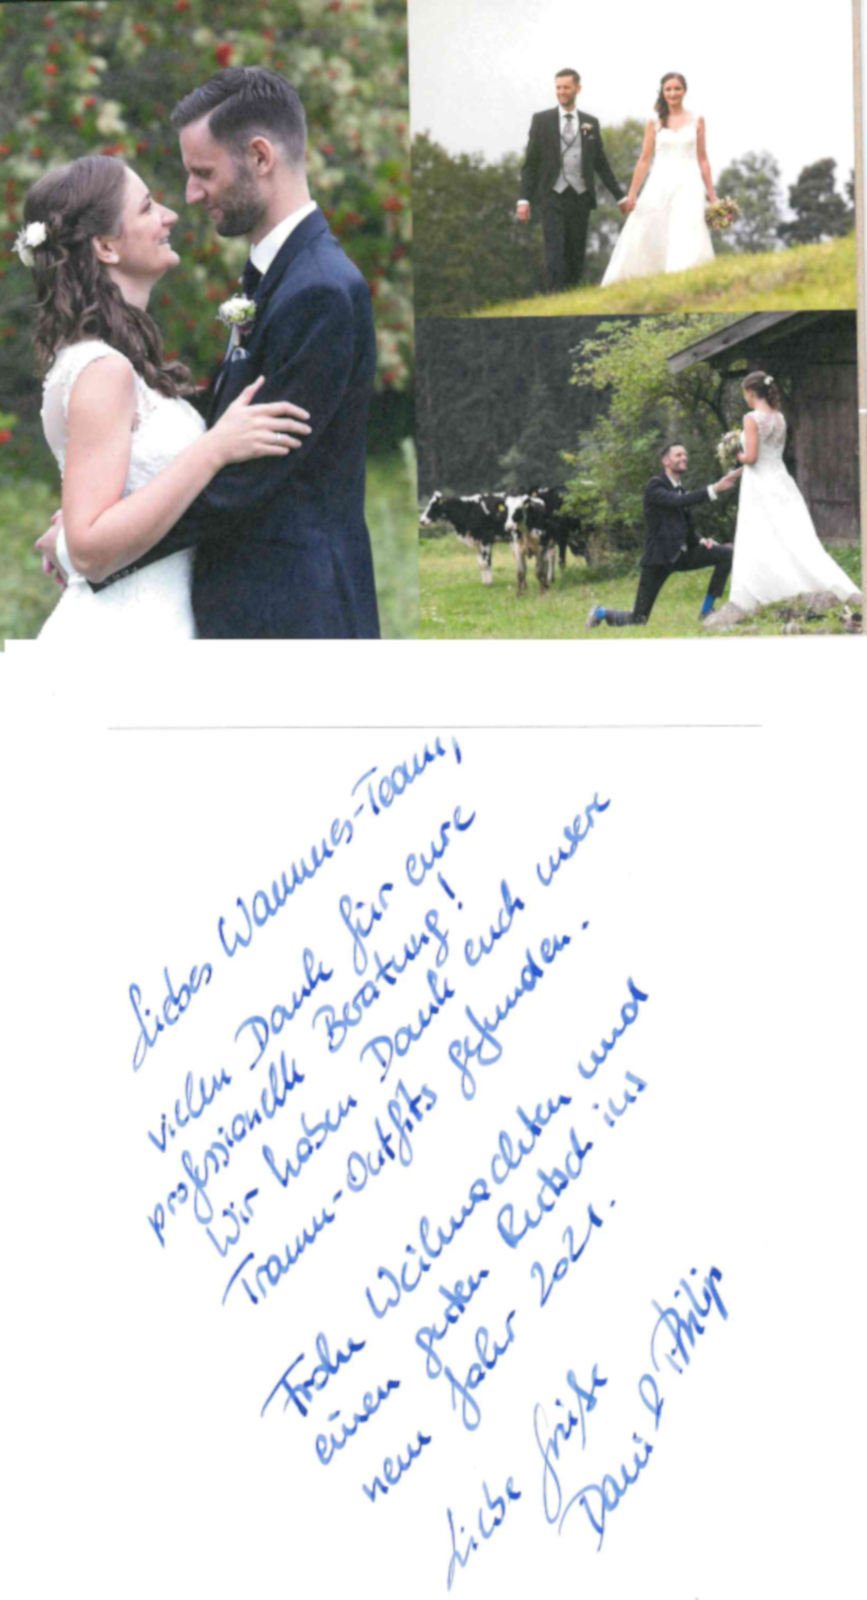 Liebes Wammes-Team,
vielen Dank für eure
professionelle Beratung!
Wir haben Dank euch unsere
Traum-Outfits gefunden.
Frohe Weihnachten und
einen guten Rutsch ins
neue Jahr 2021.
Liebe Grüße
& Philip